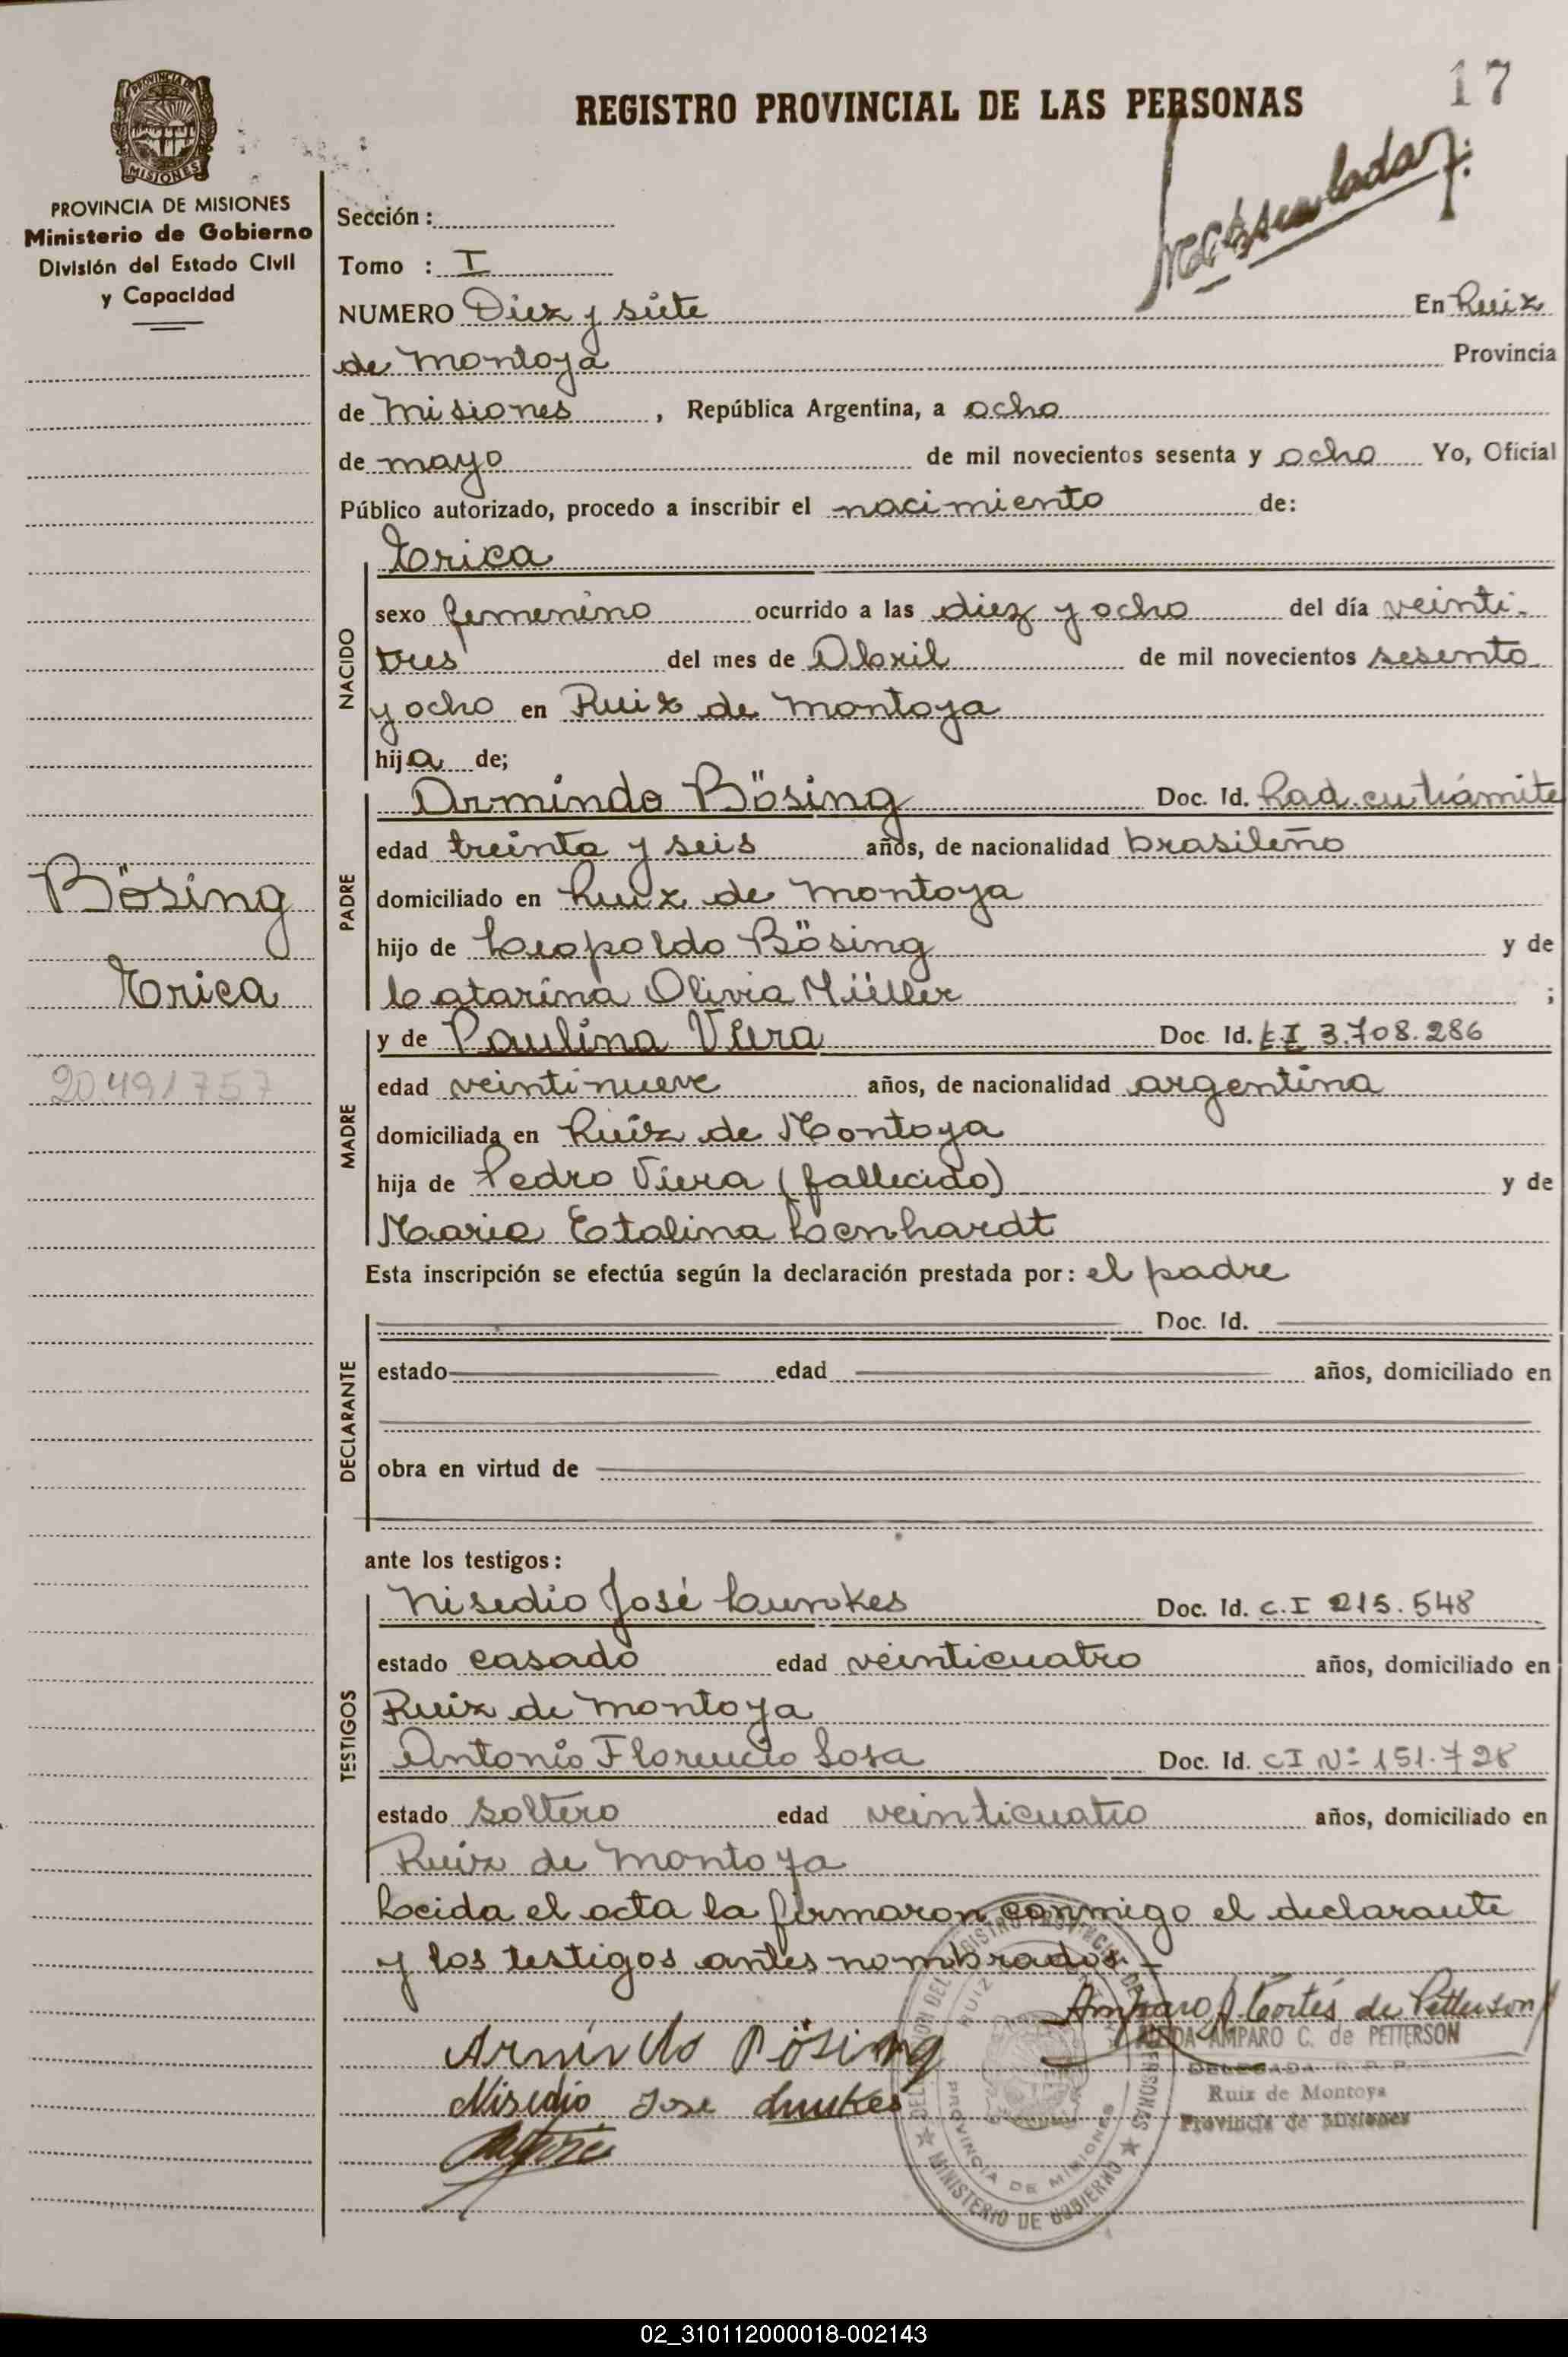 17
REGISTRO PROVINCIAL DE LAS PERSONAS
PROVINCIA DE
MISIONES
PROVINCIA DE MISIONES
Ministerio de Gobierno
División del Estado Civil
y Capacidad
Sección :
Tomo : I
NUMERO Diez y siete En Ruiz
de Montoya Provincia
de Misiones , República Argentina, a ocho
de mayo de mil novecientos sesenta y ocho Yo, Oficial
Público autorizado, procedo a inscribir el nacimiento de:
NACIDO
Erica
sexo femenino ocurrido a las diez y ocho del día veinti-
tres del mes de Abril de mil novecientos sesenta
y ocho en Ruiz de Montoya
hija de;
PADRE
Armindo Bösing Doc. Id. Rad. en trámite
edad treinta y seis años, de nacionalidad brasileño
domiciliado en Ruiz de Montoya
hijo de Leopoldo Bösing y de
Catarina Olivia Müller ;
Bösing
Erica
20491757
MADRE
y de Paulina Viera Doc. Id. C.I 3.708.286
edad veintinueve años, de nacionalidad argentina
domiciliada en Ruiz de Montoya
hija de Pedro Viera (fallecido) y de
Maria Etalina Lenhardt
Esta inscripción se efectúa según la declaración prestada por: el padre
DECLARANTE
Doc. Id.
estado edad años, domiciliado en
obra en virtud de
ante los testigos:
TESTIGOS
Nisedio José Lunkes Doc. Id. C.I 215.548
estado casado edad veinticuatro años, domiciliado en
Ruiz de Montoya
Antonio Florencio Sosa Doc. Id. CI Nº 151.728
estado soltero edad veinticuatro años, domiciliado en
Ruiz de Montoya
Leida el acta la firmaron conmigo el declarante
y los testigos antes nombrados.-
Amparo A. Cortés de Petterson
AMPARO C. de PETTERSON
DELEGADA R. P. P.
Ruiz de Montoya
Provincia de Misiones
Armindo Bösing
Nisedio Jose Lunkes
PROVINCIA DE MISIONES
MINISTERIO DE GOBIERNO
02_310112000018-002143